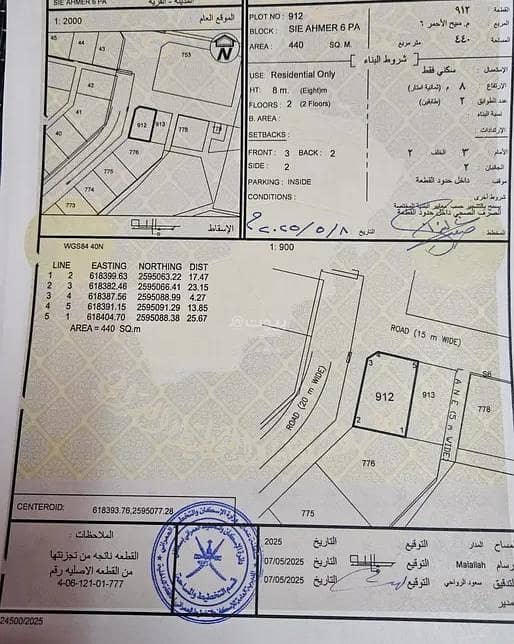 المدينة - القرية
SIE AHMER 6 PA
1: 2000
الموقع العام
N
45
44
43
753
42
41
40
912
913
775
776
775
774
773
الإسقاط
PLOT NO : 912
٩١٢
القطعة
BLOCK : SIE AHMER 6 PA
م. سيح الأحمر ٦
المربع
AREA : 440 SQ. M.
متر مربع
٤٤٠
المساحة
شروط البناء
USE: Residential Only
سكني فقط
الإستعمال :
HT: 8 m. (Eight)m
٨ م (ثمانية امتار)
الارتفاع
FLOORS : 2 (2 Floors)
٢ (طابقين)
عدد الطوابق
B. AREA :
نسبة البناء
SETBACKS :
الإرتدادات :
FRONT : 3 BACK : 2
٢
الخلف
٣
الأمام
SIDE : 2
٢
الجانبان
PARKING : INSIDE
داخل حدود القطعة
موقف
CONDITIONS :
شروط أخرى
الصرف الصحي داخل حدود القطعة
المخطط :
التاريخ
٢٠٢٥/٥/٨
WGS84 40N
1: 900
LINE EASTING NORTHING DIST
1 2 618399.63 2595063.22 17.47
2 3 618382.46 2595066.41 23.15
3 4 618387.56 2595088.99 4.27
4 5 618391.15 2595091.29 13.85
5 1 618404.70 2595088.38 25.67
AREA = 440 SQ.m
ROAD (15 m WIDE)
ROAD (20 m WIDE)
LANE (5 m WIDE)
3
4
5
912
913
S6
778
2
1
776
775
بيوت
CENTEROID: 618393.76,2595077.28
الملاحظات :
القطعه ناتجه من تجزئتها
من القطعه الاصليه رقم
4-06-121-01-777
قسم التخطيط والمساحة
2025
التاريخ
التوقيع
المدار
مساح
07/05/2025
التاريخ
التوقيع
Malallah
رسام
07/05/2025
التاريخ
التوقيع
سعود الرواحي
التدقيق
مدير
24500/2025